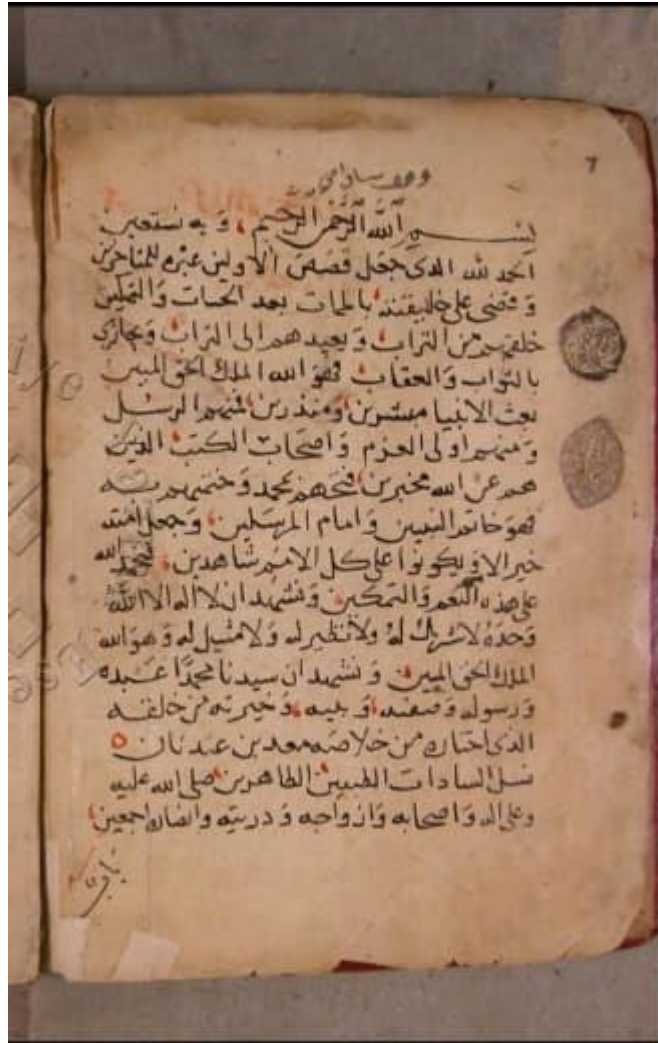 7
وقف
بسم الله الرحمن الرحيم وبه نستعين
الحمد لله الذي جعل قصص الاولين عبره للمتاخرين
وقضى على خليقته بالممات بعد الحيات والتمكين
خلقهم من التراب ويعيدهم الى التراب ويجازي
بالثواب والعقاب فهو الله الملك الحق المبين
بعث الانبيا مبشرين ومنذرين فمنهم الرسل
ومنهم اولى العزم واصحاب الكتب الذين
هم عن الله مخبرين بمحمد وختمهم به
فهو خاتم النبيين وامام المرسلين وجعل امته
خير الامم ويكونوا على كل الامم شاهدين فنحمد الله
على هذه النعم والتمكين ونشهد ان لا اله الا الله
وحده لا شريك له ولا نظير له ولا مثيل له وهو الله
الملك الحق المبين ونشهد ان سيدنا محمدا عبده
ورسوله وصفيه ونبيه وخيرته من خلقه
الذى اختاره من خلاصه معد بن عدنان
نسل السادات الطيبين الطاهرين صلى الله عليه
وعلى اله واصحابه وازواجه وذريته وانصاره اجمعين